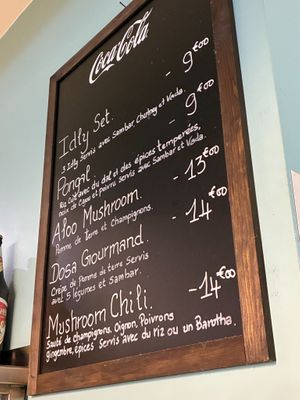 Coca-Cola
Idly Set. - 9€00
3 Idly Servis avec Sambar, Chutney et Vada.
Pongal. - 9€00
Riz cuit avec du dal et des épices tempérées,
noix de Cajou et poivre servis avec Sambar et Vada.
Aloo Mushroom. - 13€00
Pomme de terre et Champignons.
Dosa Gourmand. - 14€00
Crêpe de Pomme de terre Servis
avec 5 légumes et Sambar.
Mushroom Chili. - 14€00
Sauté de champignons, Oignon, Poivrons
gingembre, épices Servis avec du riz ou un Barotha.